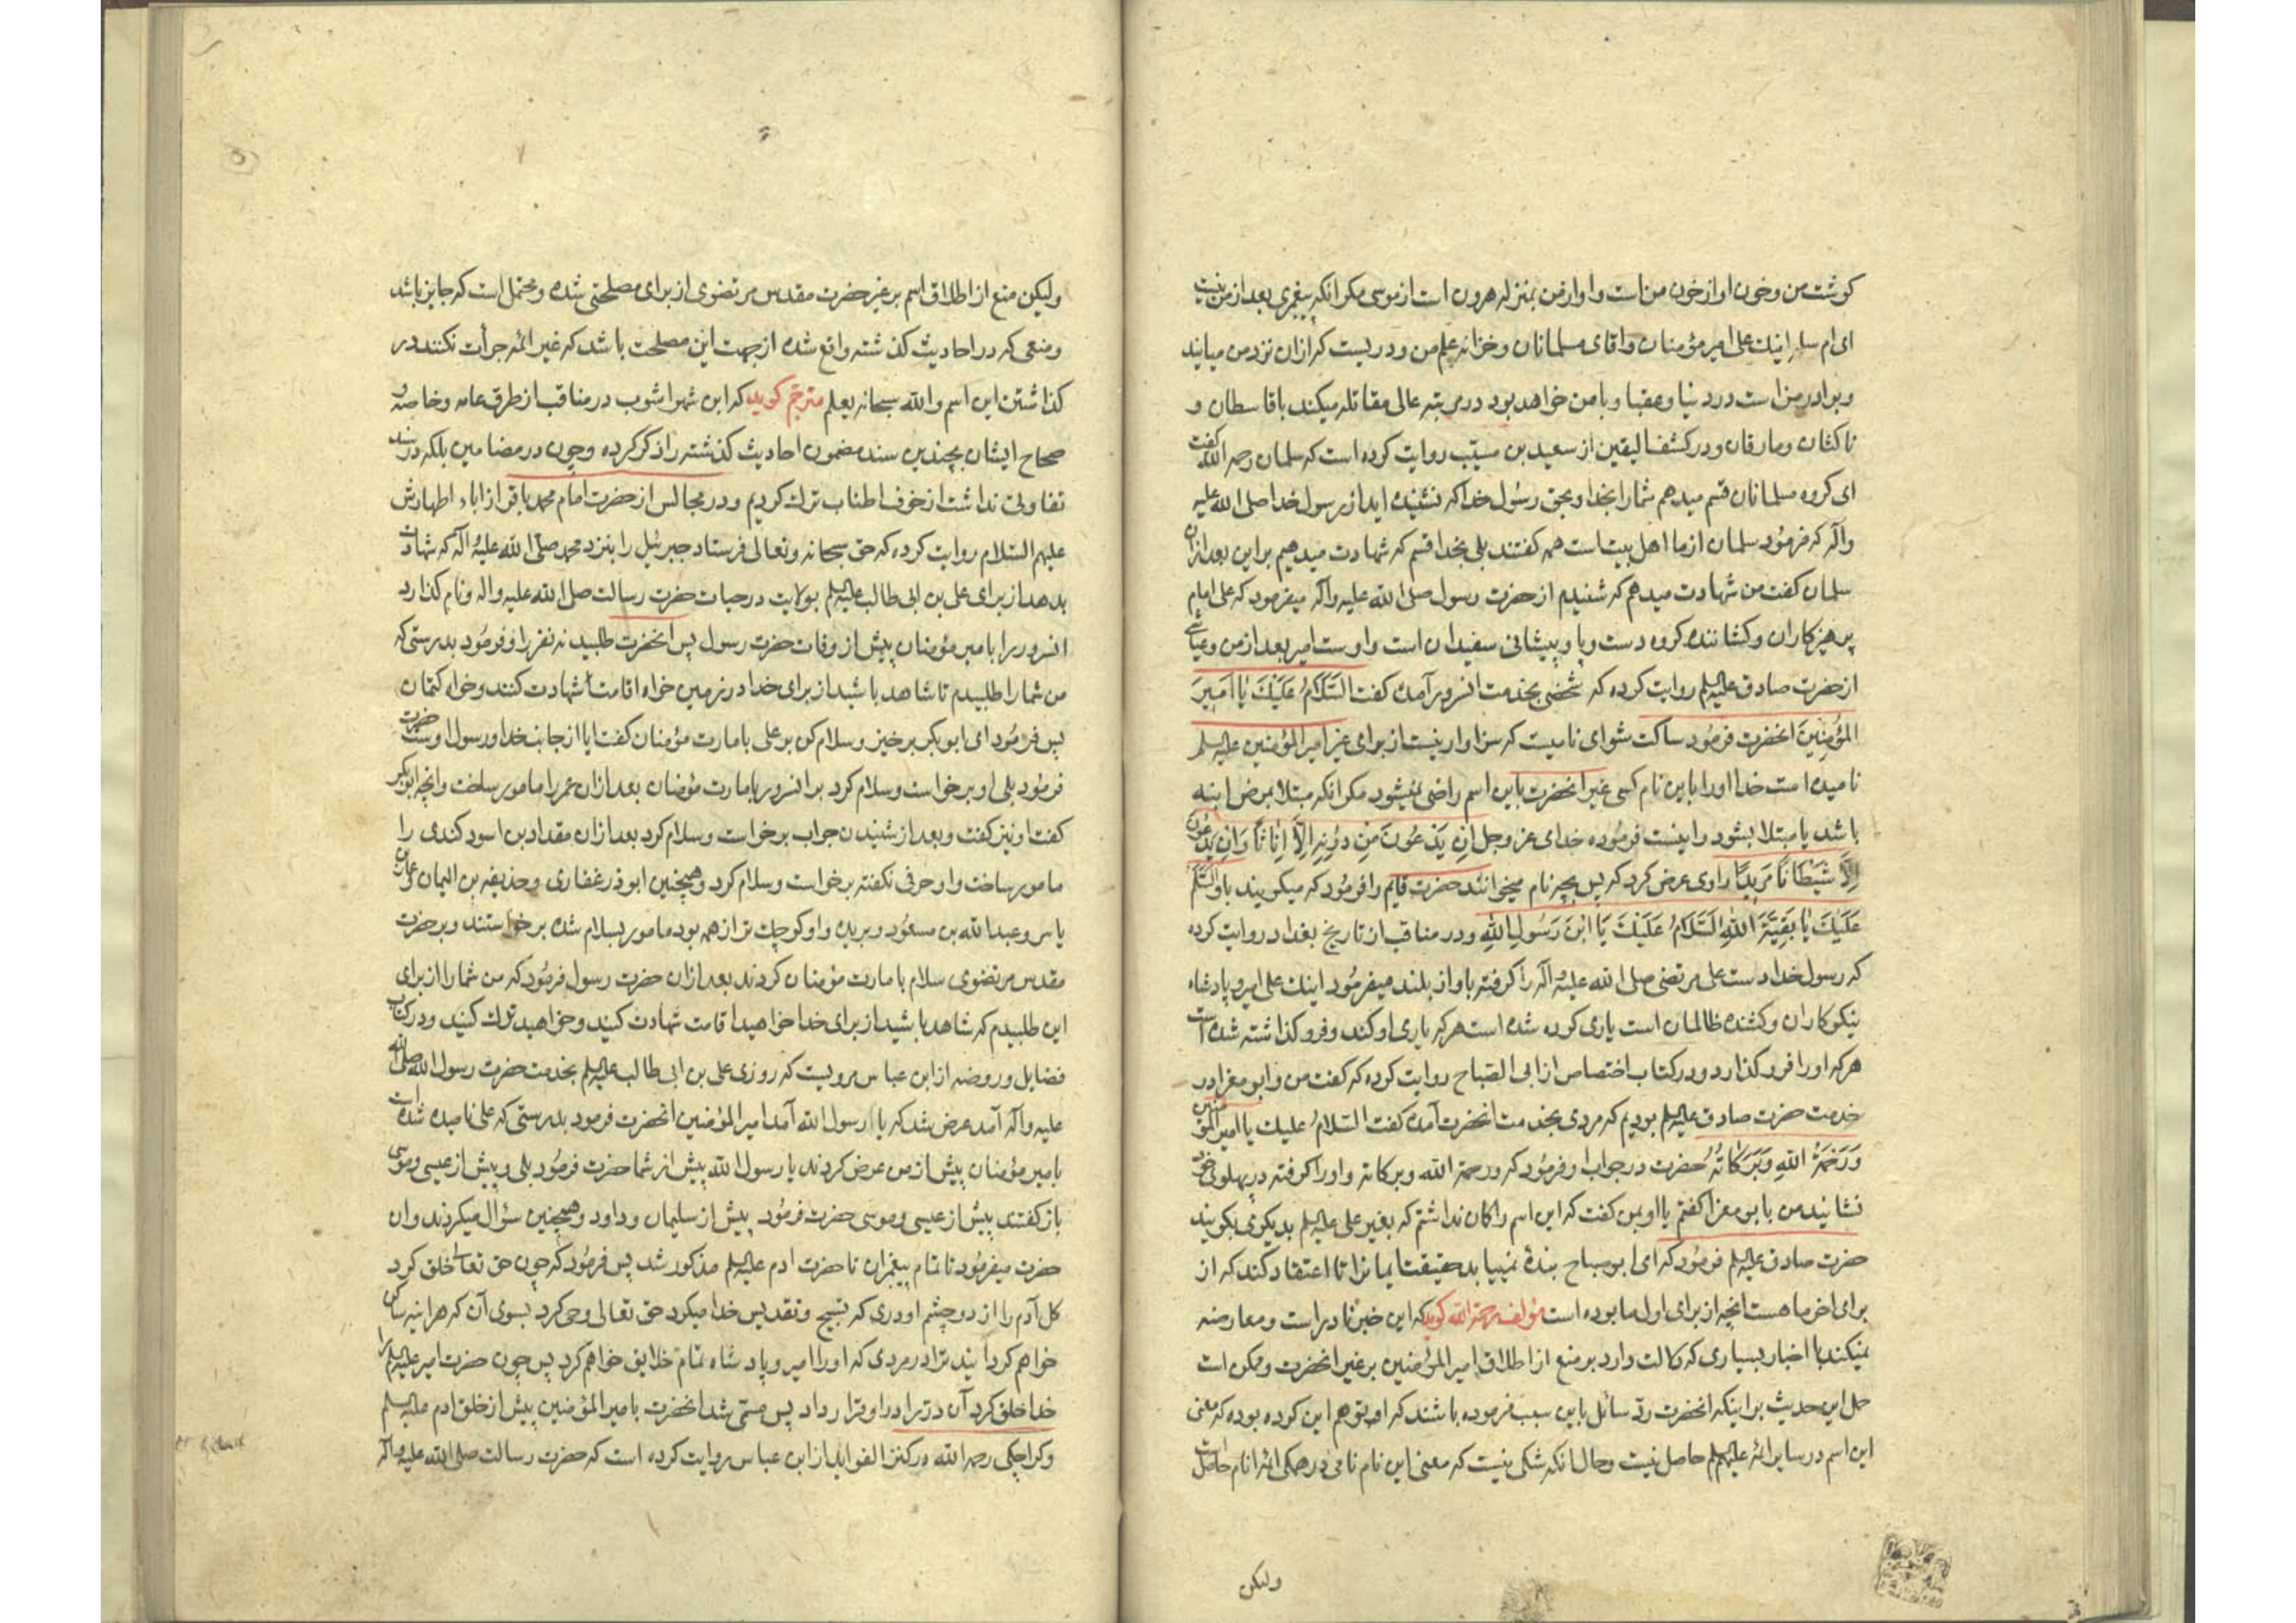 کوشت من و خون او از خون من است و او از من بمنزله هرون است از موسی مکر انکه پیغمبری بعد از من نیست
ای ام سلمه اینك علی امیر مؤمنان و اقای مسلمانان و خزانه علم من و دریست که از ان نزد من میایند
و برادر من است در دنیا و عقبا و با من خواهد بود در مرتبه عالی مقاتله میکند با قاسطان و
ناکثان و مارقان و در کشف الیقین از سعید بن مسیّب روایت کرده است که سلمان رحمه الله گفت
ای کروه مسلمانان قسم میدهم شما را بخدا و بحق رسُول خدا که نشنیده اید از رسول خدا صلی الله علیه
و آله که فرمُود سلمان از ما اهل بیت است همه کفتند بلی بخدا قسم که شهادت میدهیم بر این بعد از ان
سلمان کفت من شهادت میدهم که شنیدم از حضرت رسول صلی الله علیه و آله میفرمود که علی امام
پرهیزکاران و کشاننده کروه دست و پا و پیشانی سفیدان است و اوست امیر بعد از من و عیاشی
از حضرت صادق علیه السلم روایت کرده که شخصی بخدمت انسرور آمده کفت السَّلَامُ عَلَیْكَ یَا اَمِیرَ
المُؤْمِنِینَ انحضرت فرمُود ساکت شو ای نامیست که سزاوار نیست از برای غیر امیر المؤمنین علیه السلم
نامیده است خدا او را باین نام کسی غیر انحضرت باین اسم راضی نمیشود مکر انکه مبتلا بمرض ابنه
باشد یا مبتلا بشود و اینست فرمُوده خدای عز وجل اِنْ یَدْعُونَ مِنْ دُونِهِ اِلَّا اِنَاثًا وَاِنْ یَدْعُونَ
اِلَّا شَیْطَانًا مَرِیدًا راوی عرض کرد که پس بچه نام میخوانند حضرت قایم را فرمُود که میکویند باو السَّلَامُ
عَلَیْكَ یَا بَقِیَّةَ اللّٰهِ السَّلَامُ عَلَیْكَ یَا ابْنَ رَسُولِ اللّٰهِ و در مناقب از تاریخ بغداد روایت کرده
که رسول خدا دست علی مرتضی صلی الله علیه و آله را کرفته باواز بلند میفرمُود اینك علی امیر و پادشاه
نیکوکاران و کشنده ظالمان است یاری کرده شده است هر که یاری او کند و فرو کذاشته شده است
هر که او را فرو کذارد و در کتاب اختصاص از ابی الصّباح روایت کرده که کفت من و ابو مغرا در
خدمت حضرت صادق علیه السلم بودیم که مردی بخدمت انحضرت آمده کفت السّلامُ علیك یا امیر المؤمنین
وَرَحْمَةُ اللّٰهِ وَبَرَکَاتُهُ حضرت در جواب او فرمُود که و رحمة الله وبرکاته و او را کرفته در پهلوی خود
نشانید من با بو مغرا کفتم یا او بمن کفت که این اسم را کان نداشتم که بغیر علی علیه السلم بدیکری بکویند
حضرت صادق علیه السلم فرمُود که ای ابو صباح بندهٔ نمییابد حقیقت ایمانرا تا اعتقاد کند که از
برای اخر ما هست انچه از برای اول ما بوده است مؤلف رحمة الله کوید که این خبر نادر است و معارضه
نمیکند با اخبار بسیاری که دلالت دارد بر منع از اطلاق امیر المؤمنین بر غیر انحضرت و ممکن است
حمل این حدیث بر اینکه انحضرت ردّ سائل باین سبب فرموده باشند که او توهم این کرده بوده که معنی
این اسم در سایر ائمه علیهم السلم حاصل نیست و حال انکه شکی نیست که معنی این نام نامی در همکی ائمه انام حاصل است
ولیکن
ولیکن منع از اطلاق اسم بر غیر حضرت مقدس مرتضوی از برای مصلحتی شده و محتمل است که جایز باشد
و منعی که در احادیث کذشته واقع شده از جهت این مصلحت باشد که غیر ائمه جرأت نکنند در
کذاشتن این اسم و الله سبحانه یعلم مترجم کوید که ابن شهراشوب در مناقب از طرق عامه و خاصه و
صحاح ایشان بچندین سند مضمون احادیث کذشته را ذکر کرده و چون در مضامین بلکه در سند
تفاوتی نداشت از خوف اطناب ترك کردیم و در مجالس از حضرت امام محمد باقر از اباء اطهارش
علیهم السّلام روایت کرده که حق سبحانه و تعالی فرستاد جبرئیل را بنزد محمد صلی الله علیه و آله که شهادت
بدهد از برای علی بن ابی طالب علیه السلم بولایت در حیات حضرت رسالت صلی الله علیه واله و نام کذارد
انسرور را بامیر مؤمنان پیش از وفات حضرت رسول پس انحضرت طلبید نه نفر را و فرمُود بدرستی که
من شما را طلبیدم تا شاهد باشید از برای خدا در زمین خواه اقامت شهادت کنند و خواه کتمان
پس فرمُود ای ابو بکر برخیز و سلام کن بر علی بامارت مؤمنان کفت ایا از جانب خدا و رسول اوست حضرت
فرمُود بلی او برخواست و سلام کرد بر انسرور بامارت مؤمنان بعد از ان عمر را مامور ساخت و انچه ابو بکر
کفت او نیز کفت و بعد از شنیدن جواب برخواست و سلام کرد بعد از ان مقداد بن اسود کندی را
مامور ساخت و او حرفی نکفته برخواست و سلام کرد و همچنین ابوذر غفاری و حذیفه بن الیمان و عمار بن
یاسر و عبد الله بن مسعُود و بریده و او کوچك تر از همه بود مامور بسلام شده برخواستند و بر حضرت
مقدس مرتضوی سلام بامارت مؤمنان کردند بعد از ان حضرت رسول فرمُود که من شما را از برای
این طلبیدم که شاهد باشید از برای خدا خواهید اقامت شهادت کنید و خواهید ترك کنید و در کتاب
فضایل و روضه از ابن عباس مرویست که روزی علی بن ابی طالب علیه السلم بخدمت حضرت رسول الله صلی الله
علیه و آله آمد عرض شد که یا رسول الله آمد امیر المؤمنین انحضرت فرمود بدرستی که علی نامیده شده است
بامیر مؤمنان پیش از من عرض کردند یا رسول الله پیش از شما حضرت فرمُود بلی و پیش از عیسی و موسی
باز کفتند پیش از عیسی و موسی حضرت فرمُود پیش از سلیمان و داود و همچنین سؤال میکردند و ان
حضرت میفرمُود تا تمام پیغمبران تا حضرت ادم علیه السلم مذکور شد پس فرمُود که چون حق تعالی خلق کرد
کل آدم را از دو چشم او دری که تسبیح و تقدیس خدا میکرد حق تعالی وحی کرد بسوی آن که هراینه ساکن
خواهم کردانید ترا در مردی که او را امیر و پادشاه تمام خلایق خواهم کرد پس چون حضرت امیر علیه السلم را
خدا خلق کرد آن در را در او قرار داد پس مسمّی شد انحضرت بامیر المؤمنین پیش از خلق ادم علیه السلم
و کراجکی رحمه الله در کنز الفواید از ابن عباس روایت کرده است که حضرت رسالت صلی الله علیه و آله